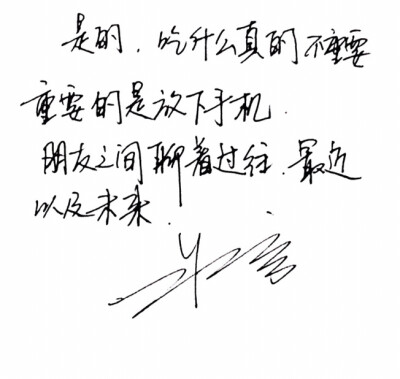 是的，吃什么真的不重要
重要的是放下手机.
朋友之间聊着过往、最近
以及未来.